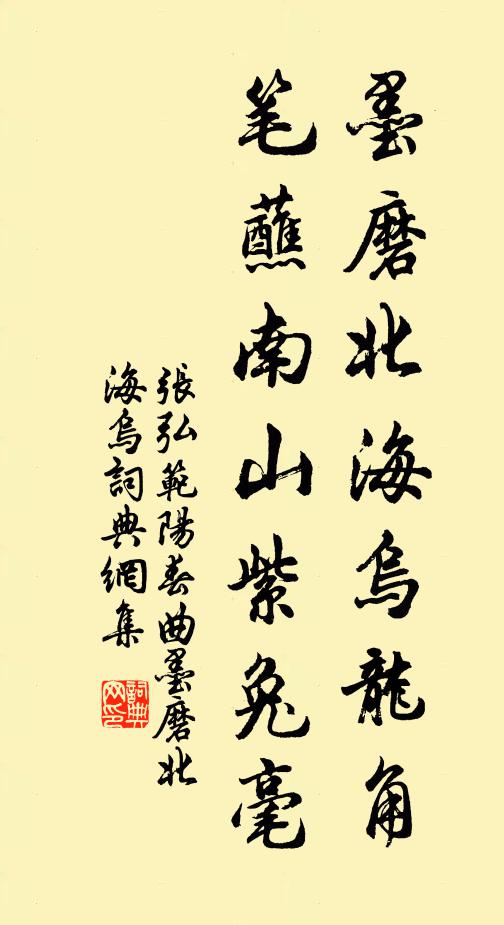 墨磨北海烏龍角
笔蘸南山紫兔毫
張弘範陽春曲墨磨北
海烏詞典網集
詞典
网印